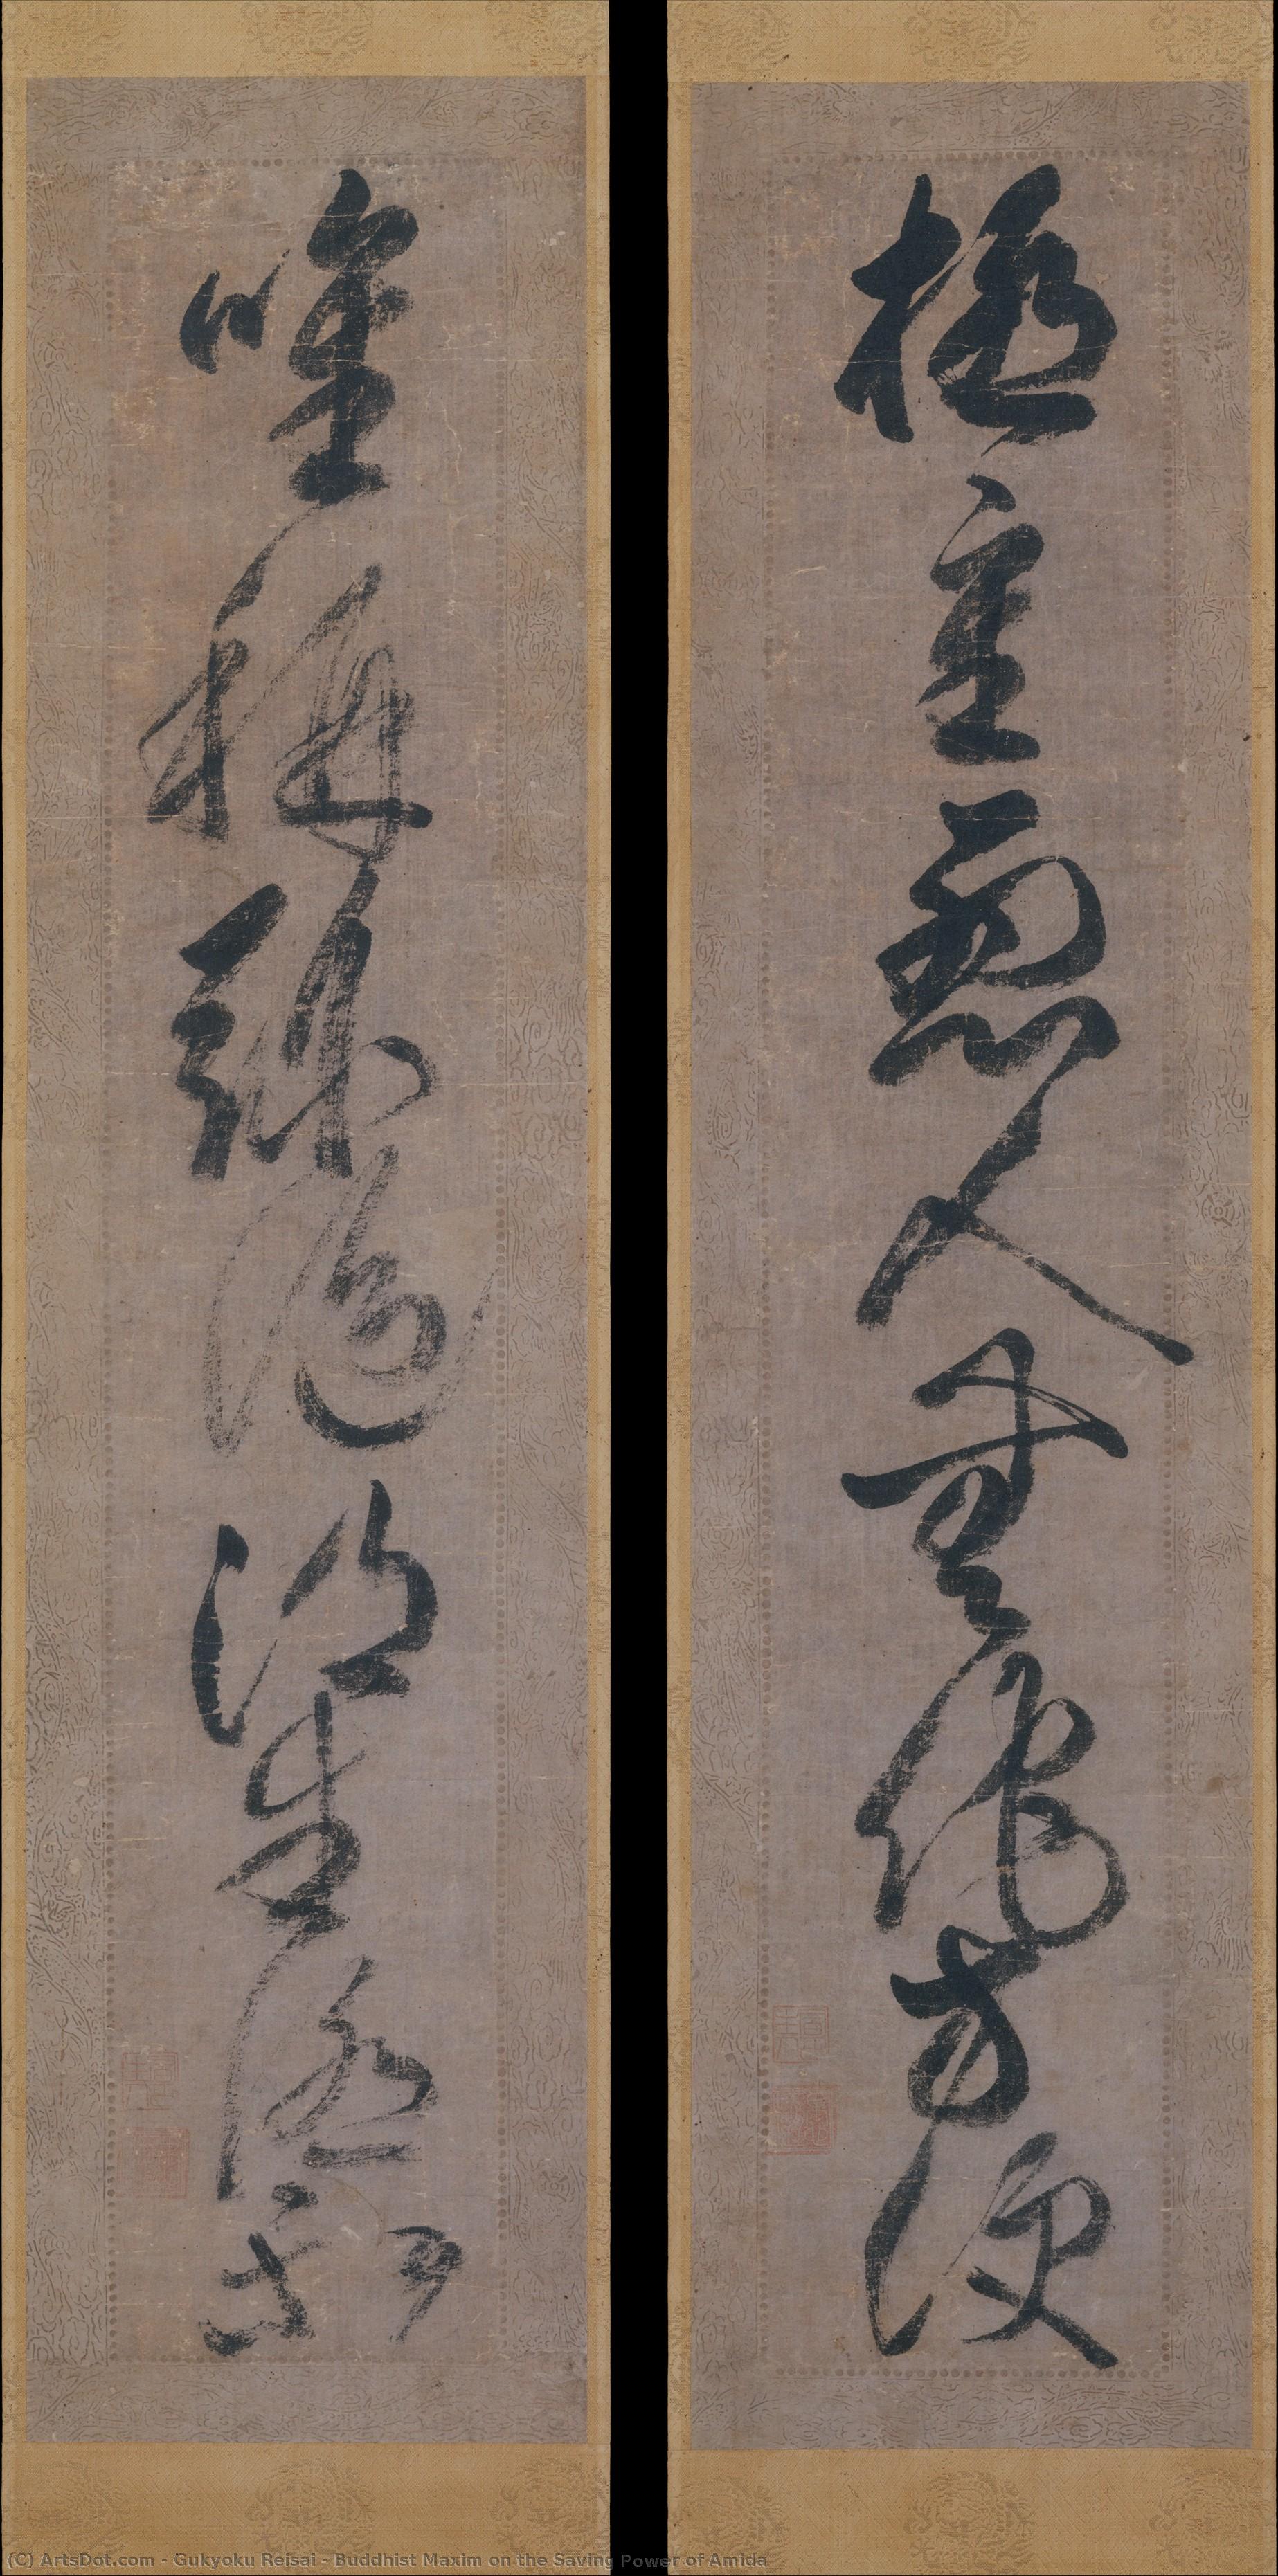 極重悪人無他方便
唯称弥陀得生極楽
(C) ArtsDot.com - Gukyoku Reisai - Buddhist Maxim on the Saving Power of Amida